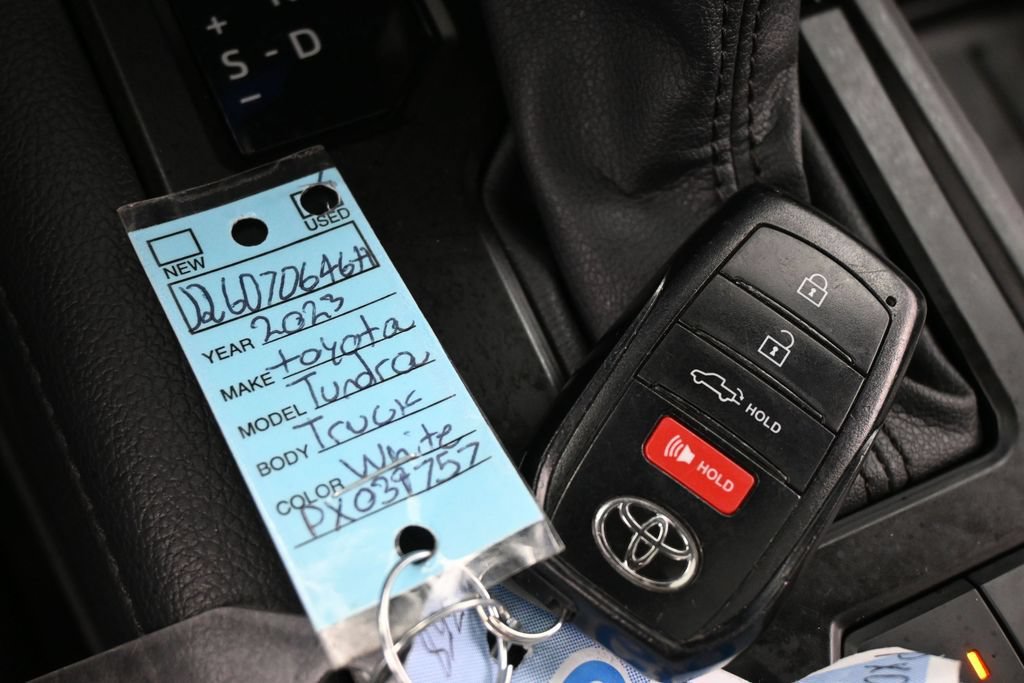 +
S - D
−
NEW
USED
D26070646A
YEAR 2023
MAKE toyota
MODEL Tundra
BODY Truck
COLOR White
PX039757
HOLD
HOLD